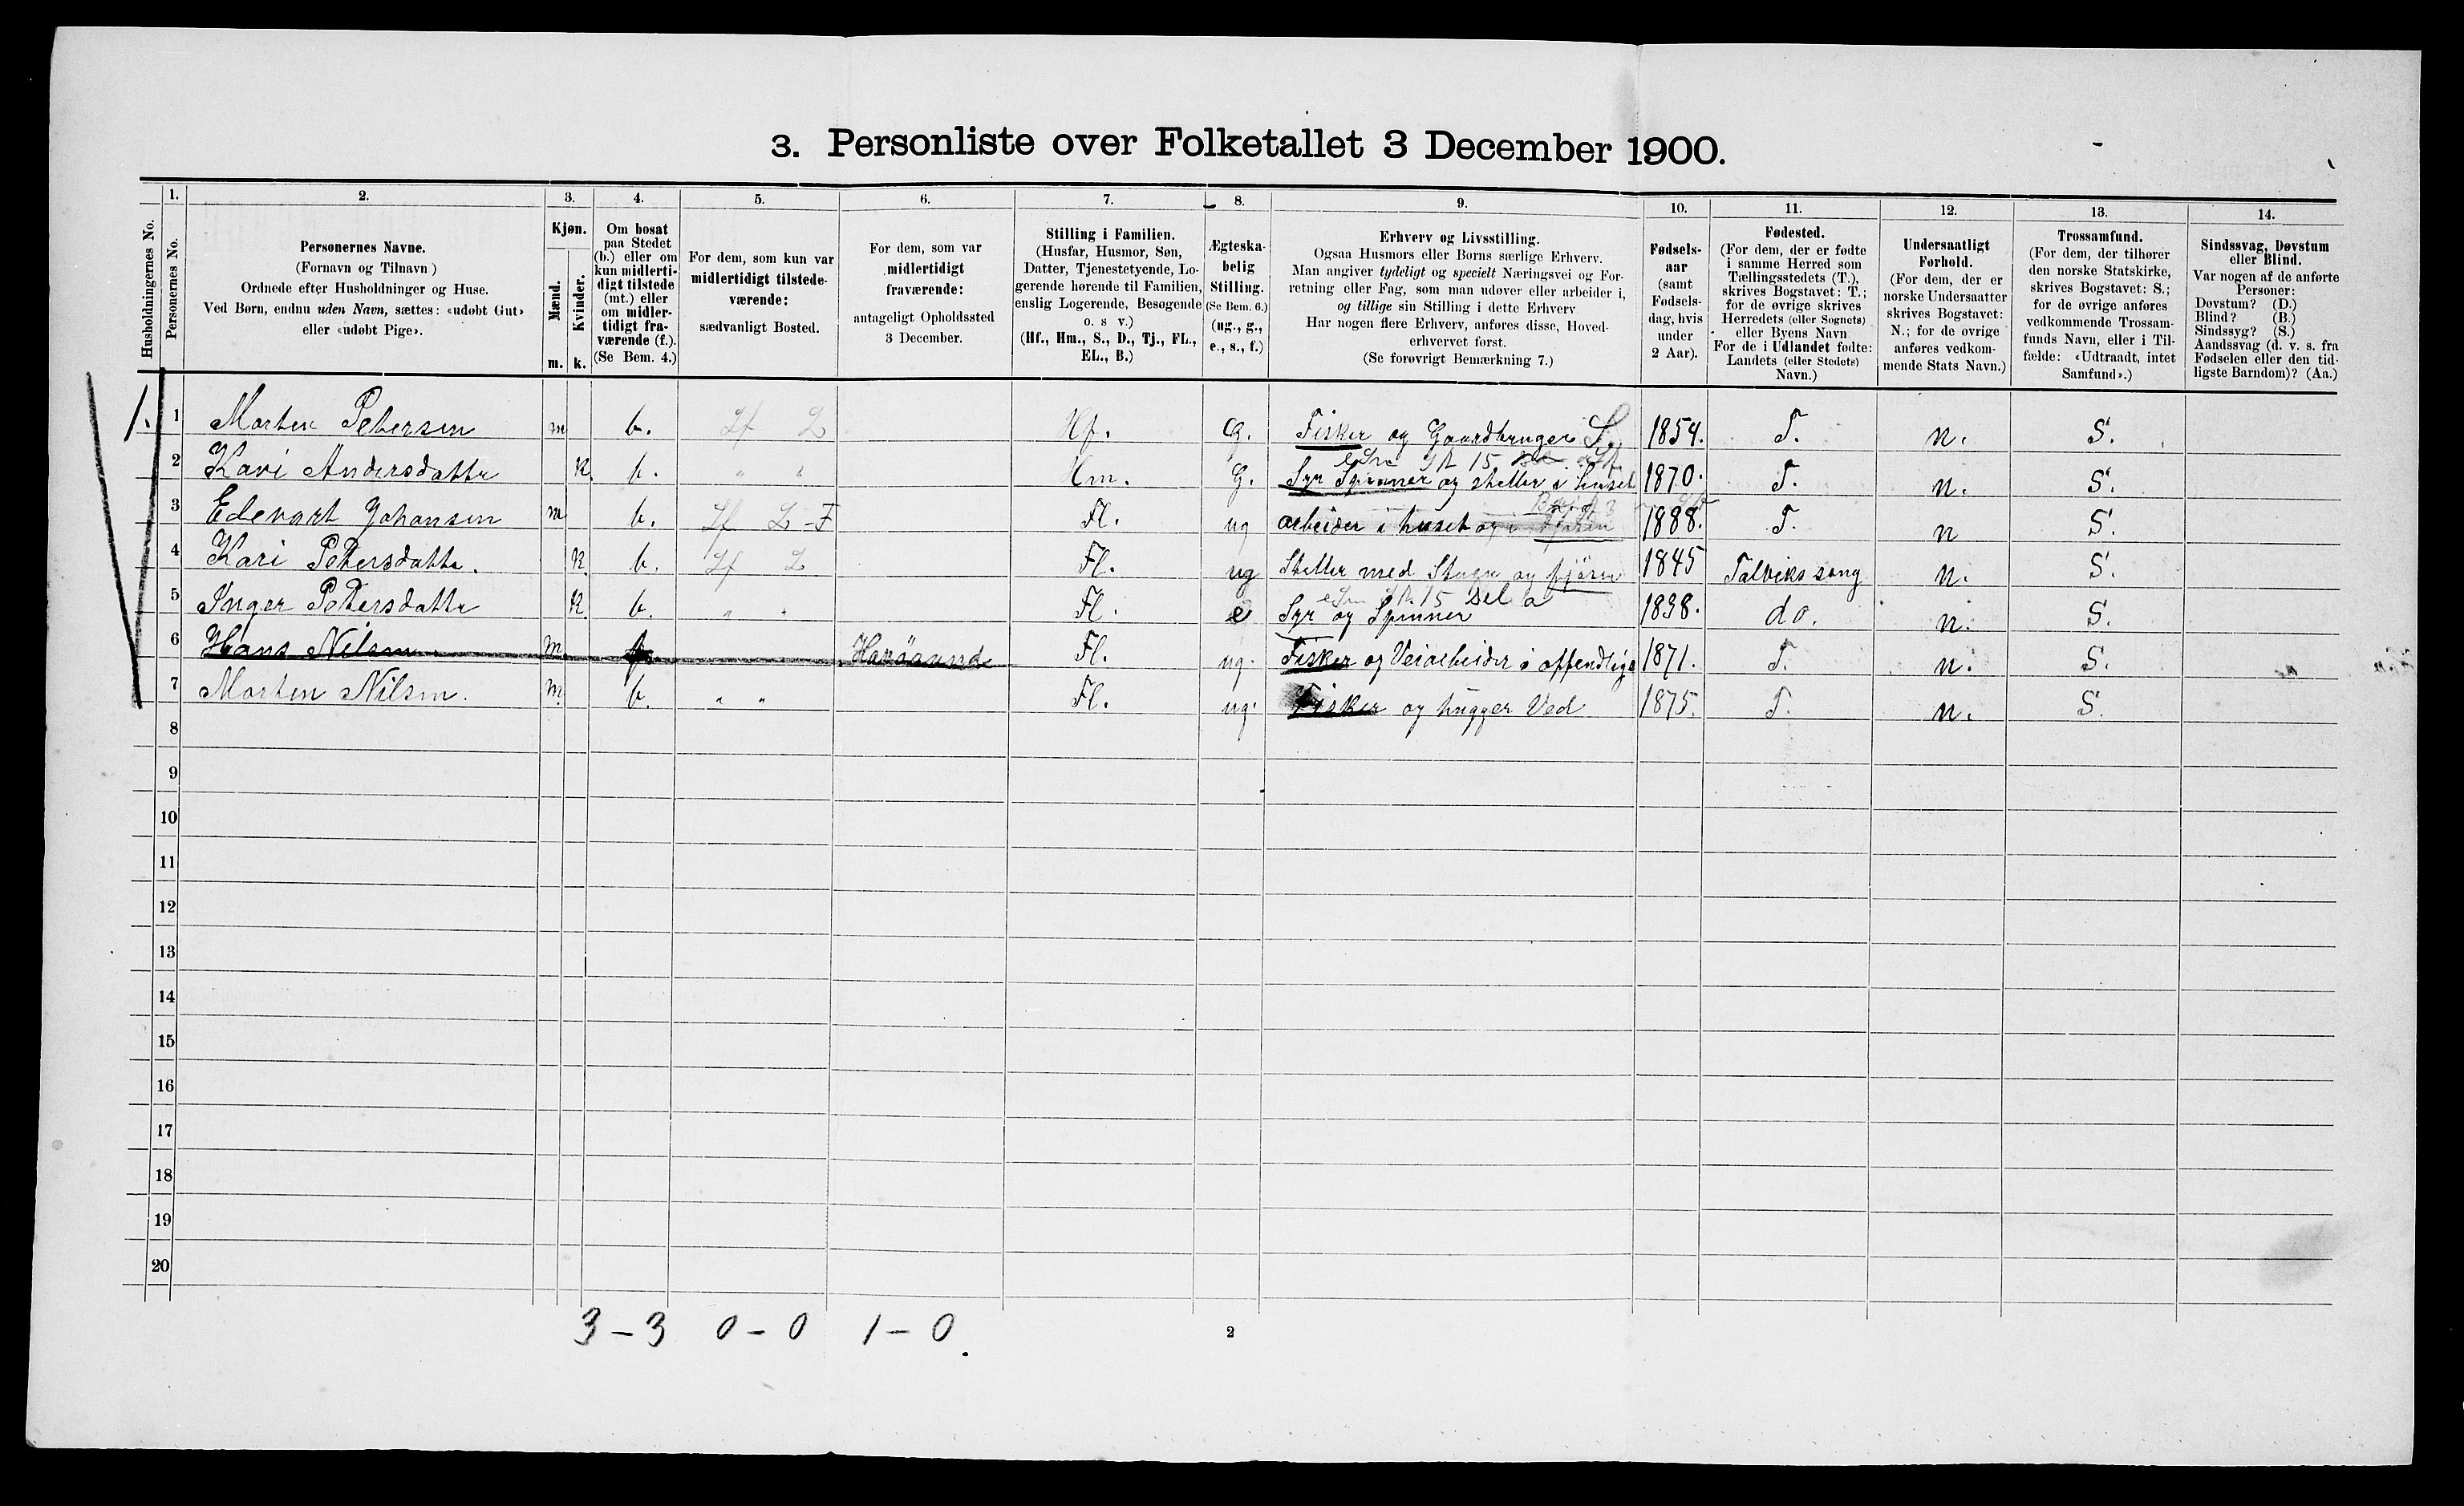 3. Personliste over Folketallet 3 December 1900.
Husholdningernes No.
1.
Personernes No.
2.
Personernes Navne.
(Fornavn og Tilnavn)
Ordnede efter Husholdninger og Huse.
Ved Børn, endnu uden Navn, sættes: «udøbt Gut»
eller «udøbt Pige».
3.
Kjøn.
Mænd.
Kvinder.
m. k.
4.
Om bosat
paa Stedet
(b.) eller om
kun midlerti-
digt tilstede
(mt.) eller
om midler-
tidigt fra-
værende (f.).
(Se Bem. 4.)
5.
For dem, som kun var
midlertidigt tilstede-
værende:
sædvanligt Bosted.
6.
For dem, som var
midlertidigt
fraværende:
antageligt Opholdssted
3 December.
7.
Stilling i Familien.
(Husfar, Husmor, Søn,
Datter, Tjenestetyende, Lo-
gerende hørende til Familien,
enslig Logerende, Besøgende
o. s v.)
(Hf., Hm., S., D., Tj., FL.,
EL., B.)
8.
Ægteska-
belig
Stilling.
(Se Bem. 6.)
(ug., g.,
e., s., f.)
9.
Erhverv og Livsstilling.
Ogsaa Husmors eller Børns særlige Erhverv.
Man angiver tydeligt og specielt Næringsvei og For-
retning eller Fag, som man udøver eller arbeider i,
og tillige sin Stilling i dette Erhverv
Har nogen flere Erhverv, anføres disse, Hoved-
erhvervet først.
(Se forøvrigt Bemærkning 7.)
10.
Fødsels-
aar
(samt
Fødsels-
dag, hvis
under
2 Aar).
11.
Fødested.
(For dem, der er fødte
i samme Herred som
Tællingsstedets (T.),
skrives Bogstavet: T.;
for de øvrige skrives
Herredets (eller Sognets)
eller Byens Navn
For de i Udlandet fødte:
Landets (eller Stedets)
Navn.)
12.
Undersaatligt
Forhold.
(For dem, der er
norske Undersaatter
skrives Bogstavet:
N.; for de øvrige
anføres vedkom-
mende Stats Navn.)
13.
Trossamfund.
(For dem, der tilhører
den norske Statskirke,
skrives Bogstavet: S.;
for de øvrige anføres
vedkommende Trossam-
funds Navn, eller i Til-
fælde: «Udtraadt, intet
Samfund».)
14.
Sindssvag, Døvstum
eller Blind.
Var nogen af de anførte
Personer:
Døvstum? (D.)
Blind? (B.)
Sindssyg? (S.)
Aandssvag (d. v. s. fra
Fødselen eller den tid-
ligste Barndom)? (Aa.)
1. 1 Morten Petersen m b. Lf L Hf. G. Fisker og Gaardbruger S. 1854. T. n. S.
2 Kari Andersdatter k. b. " " Hm. G. Syr Spinner og steller i huset 1870. T. n. S.
3 Edevart Johansen m b. Lf L-F Fl. ug arbeider i huset og i fjøsen 1888. T. n S.
4 Kari Petersdatte. k b. Lf L Fl. ug Steller med Stuen og fjösen 1845 Talviks song n. S.
5 Inger Petersdatter k. b. " " Fl. e Syr og Spinner 1838. do. n. S.
6 Hans Nilsen m. Fl. ug. Fisker og Veiarbeider i offendlige 1871. T. n. S.
7 Morten Nilsen. m. b. " " Fl. ug. Fisker og hugger Ved 1875. T. n. S.
8
9
10
11
12
13
14
15
16
17
18
19
20
3 - 3 0 - 0 1 - 0.
2